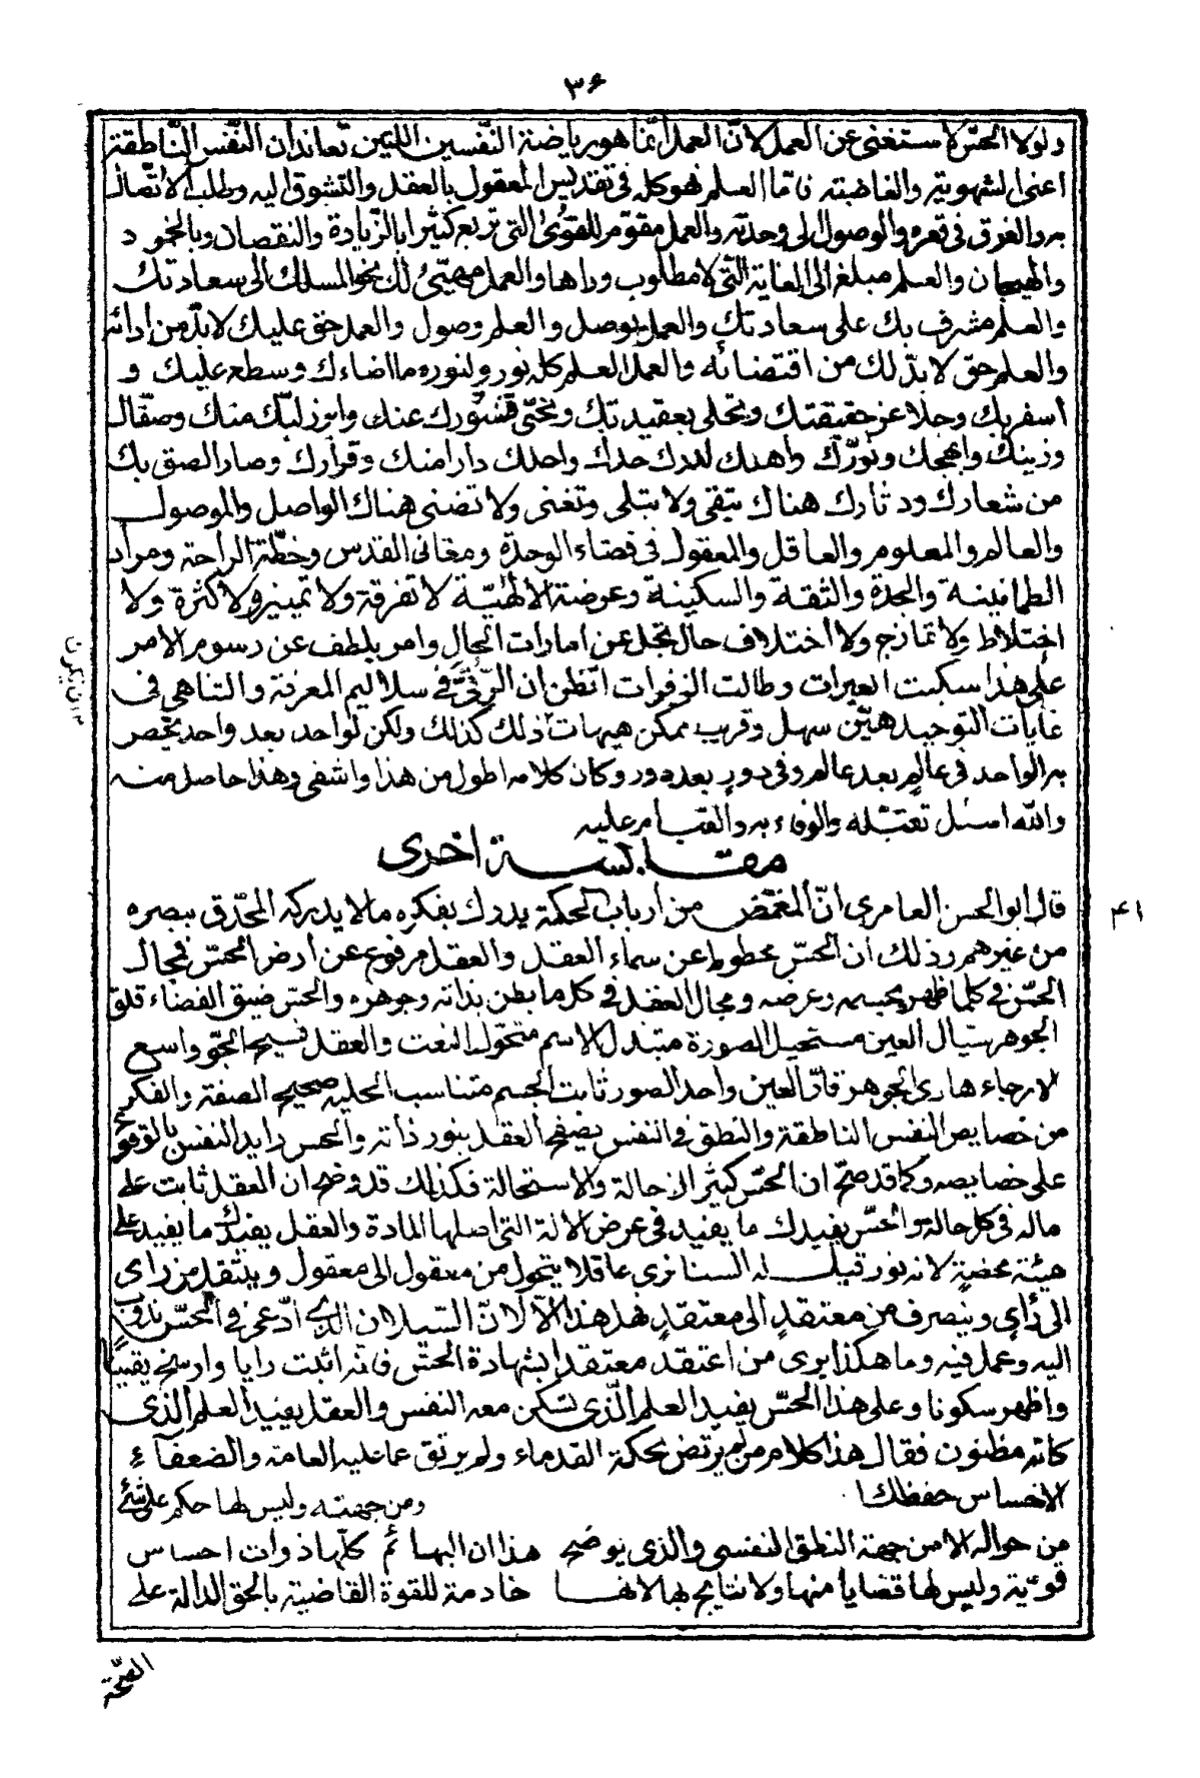 ٣۶
ولولا الحسّ لاستغنى عن العمل لانّ العمل انّما هو رياضة النّفسين اللتين تعاندان النّفس النّاطقة
اعنى الشهوية والغاضبة فامّا العلم فهو كله فى تقديس المعقول بالعقل والتشوق اليه وطلب الاتّصال
به والغرق فى بحره والوصول الى وحدته والعمل مقوّم للقوى التى تربع كثيرا بالزّيادة والنقصان وبالخمود
والهيجان والعلم مبلغ الى الغاية الّتى لا مطلوب وراها والعمل مهيّئ لك نحو المسلك الى سعادتك
والعلم مشرف بك على سعادتك والعمل يوصل والعلم وصول والعمل حق عليك لابدّ من ادائه
والعلم حق لابدّ لك من اقتضائه والعمل العلم كله نور ولنوره ما اضاءك وسطع عليك و
اسفر بك وجلا عن حقيقتك وتحلى بعقيدتك ونحّى قشورك عنك وابرز لبّك منك وصقّال
وزينك وابهجك ونوّرك واهنك لغدك حدك واحلك دار امنك وقرارك وصار الصق بك
من شعارك ودثارك هناك تبقى ولا تبتلى وتغنى ولا تضنى هناك الواصل والموصول
والعالم والمعلوم والعاقل والمعقول فى فضاء الوحدة ومغانى القدس وخطّة الراحة ومراد
الطمانينة والجدة والثقة والسكينة وعرضة الالٰهيّة لا تفرقة ولا تمييز ولا كثرة ولا
اختلاط ولا تمازج ولا اختلاف حال تجل عن امارات الحال وامر يلطف عن رسوم الامر
على هذا سكبت العبرات وطالت الزفرات اتظن ان الترقّى فى سلاليم المعرفة والتناهى فى
غايات التوحيد هيّن سهل وقريب ممكن هيهات ذلك كذلك ولكن لواحد بعد واحد يختصر
به الواحد فى عالم بعد عالم وفى دور بعد دور وكان كلامه اطول من هذا واشفى وهذا حاصل منه
والله اسئل تقبّله والوفاء به والقيام عليه
مقابسة اخرى
قال ابو الحسن العامرى انّ المغمّض من ارباب الحكمة يدرك بفكره ما لا يدركه المحدّق ببصره
من غيرهم وذلك ان الحسّ محطوط عن سماء العقل والعقل مرفوع عن ارض الحسّ فمجال
الحسّ فى كلما ظهر بجسمه وعرضه ومجال العقل فى كل ما بطن بذاته وجوهره والحسّ ضيق الفضاء قلق
الجوهر سيّال العين مستحيل الصورة متبدل الاسم متحوّل النعت والعقل فسيح الجوّ واسع
الارجاء هادى الجوهر قارّ العين واحد الصور ثابت الجسم متناسب الحلية صحيح الصفة والفكر
من خصايص النفس الناطقة والنطق فى النفس يصفح العقل بنور ذاته والحس رايد النفس بالوقوع
على خصايصه وكما قد صحّ ان الحسّ كثير الاحالة والاستحالة فكذلك قد وضح ان العقل ثابت على
ماله فى كل حاله والحسّ يفيدك ما يفيد فى عرض الالة التى اصلها المادة والعقل يفيدك ما يفيد على
هيئة محضة لانه نور قيل له السنا نرى عاقلا يتحول من معقول الى معقول وينتقل من راى
الى رأى وينصرف من معتقد الى معتقد فهل هذا الا لانّ السيلان الذى ادّعى فى الحسّ ندوب
اليه وعمل فيه وما هكذا يرى من اعتقد معتقدا بشهادة الحسّ فانّه اثبت رايا وارسخ يقينًا
واظهر سكونا وعلى هذا الحسّ يفيد العلم الّذى تسكن معه النفس والعقل يفيد العلم الّذى
كانه مظنون فقال هذا كلام من لم يرتض بحكمة القدماء ولم يرتق عما عليه العامة والضعفآء
الاحساس حفظك ومن جهته وليس لها حكم على شئ
من حواله الا من جهة النطق النفسى والذى يوضح هذا ان البهائم كلّها ذوات احساس
قويّة وليس لها قضايا منها ولا نتايج بها لانها خادمة للقوة القاضية بالحق الدالة على
الصّحّة
۴١